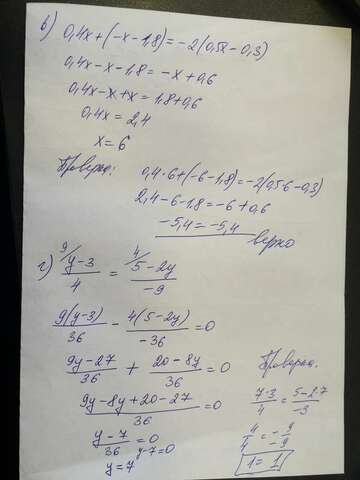 в) 0,4x+(-x-1,8)=-2(0,5x-0,3)
0,4x-x-1,8=-x+0,6
0,4x-x+x=1,8+0,6
0,4x=2,4
x=6
Проверка:
0,4·6+(-6-1,8)=-2(0,5·6-0,3)
2,4-6-1,8=-6+0,6
-5,4=-5,4
верно
г) 9/ y-3 / 4 = 4/ 5-2y / -9
9(y-3)/36 - 4(5-2y)/-36 =0
9y-27/36 + 20-8y/36 =0
9y-8y+20-27/36 =0
y-7/36 =0
y-7=0
y=7
Проверка.
7-3/4 = 5-2·7/-9
4/4 = -9/-9
1=1